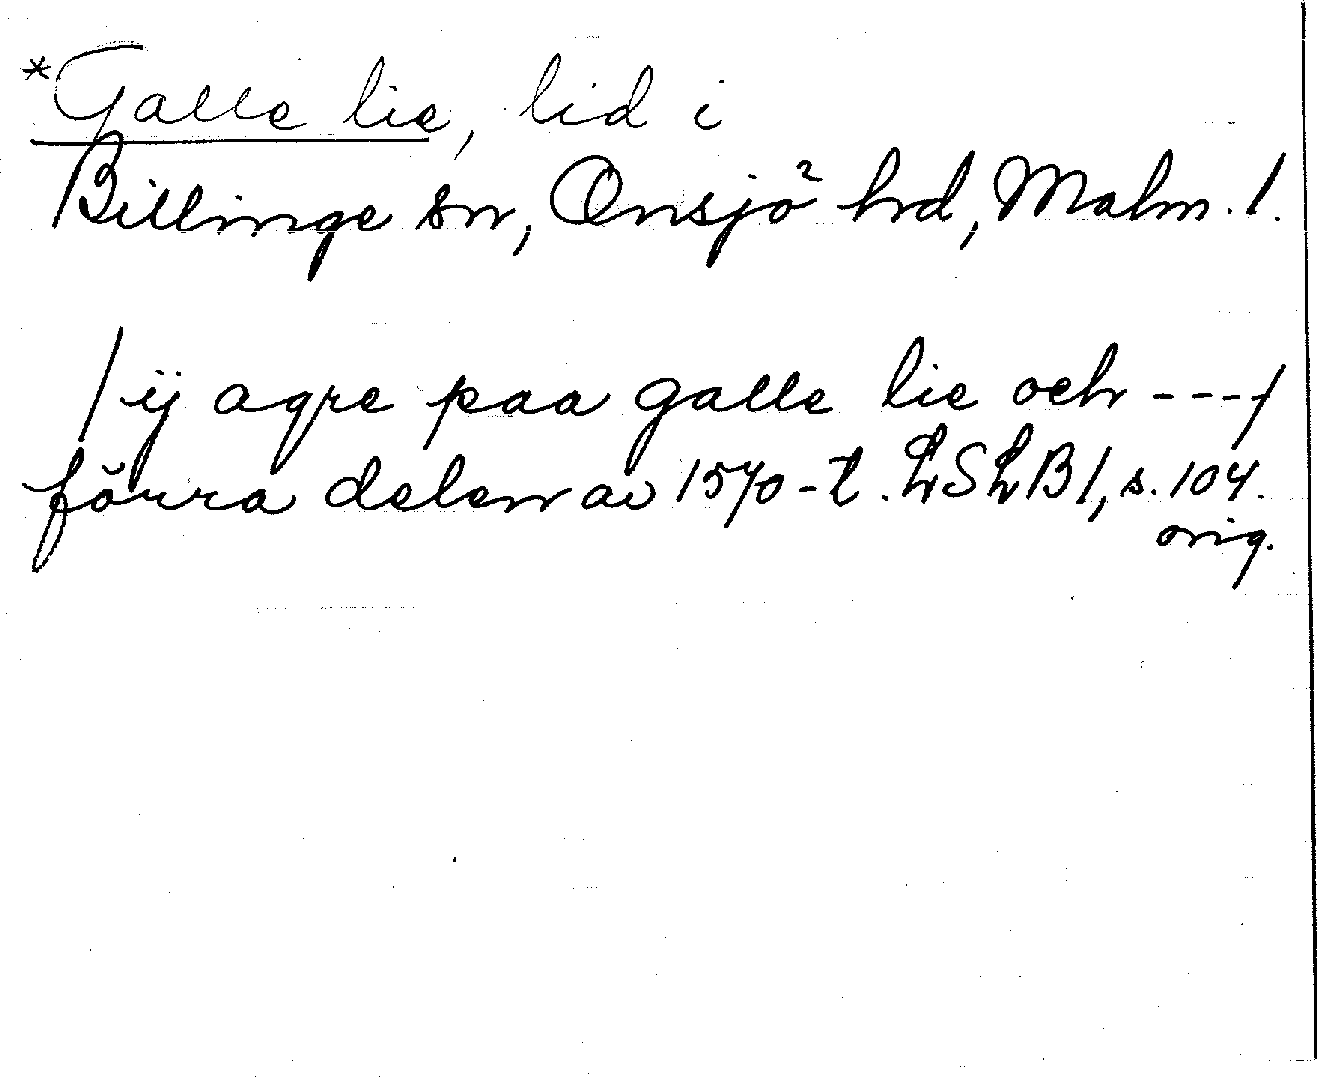 *Galle lie, lid i
Billinge sn, Onsjö hrd, Malm. l.
/ij agre paa galle lie och ---/
förra delen av 1570-t. LSLB1, s. 104.
orig.